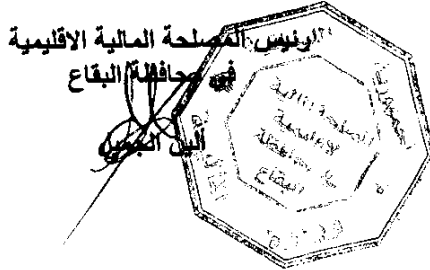 رئيس المصلحة المالية الاقليمية
في محافظة البقاع
ألين الجميل
المصلحة المالية
الاقليمية
في محافظة
البقاع